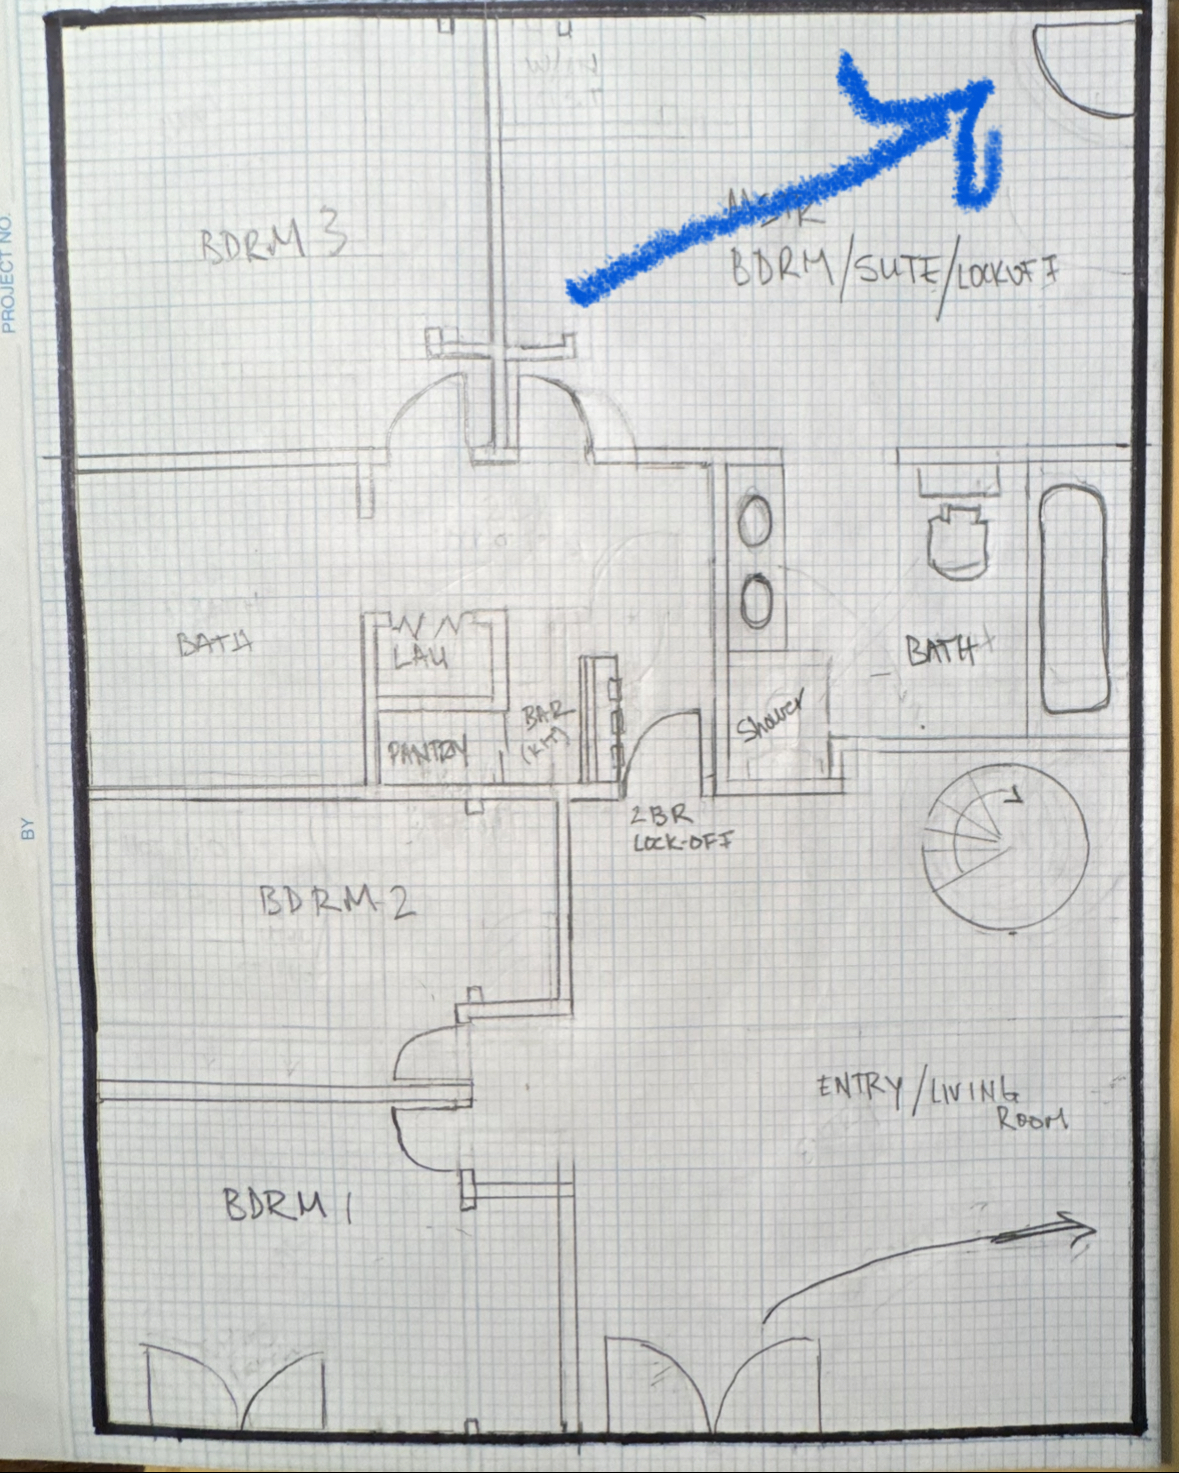 PROJECT NO.
BY
BDRM 3
MSTR
BDRM/SUTE/LOCKOFF
BATH
LAU
PANTRY
BAR
(KIT)
Shower
BATH
2BR
LOCK-OFF
BDRM 2
ENTRY/LIVING
ROOM
BDRM 1